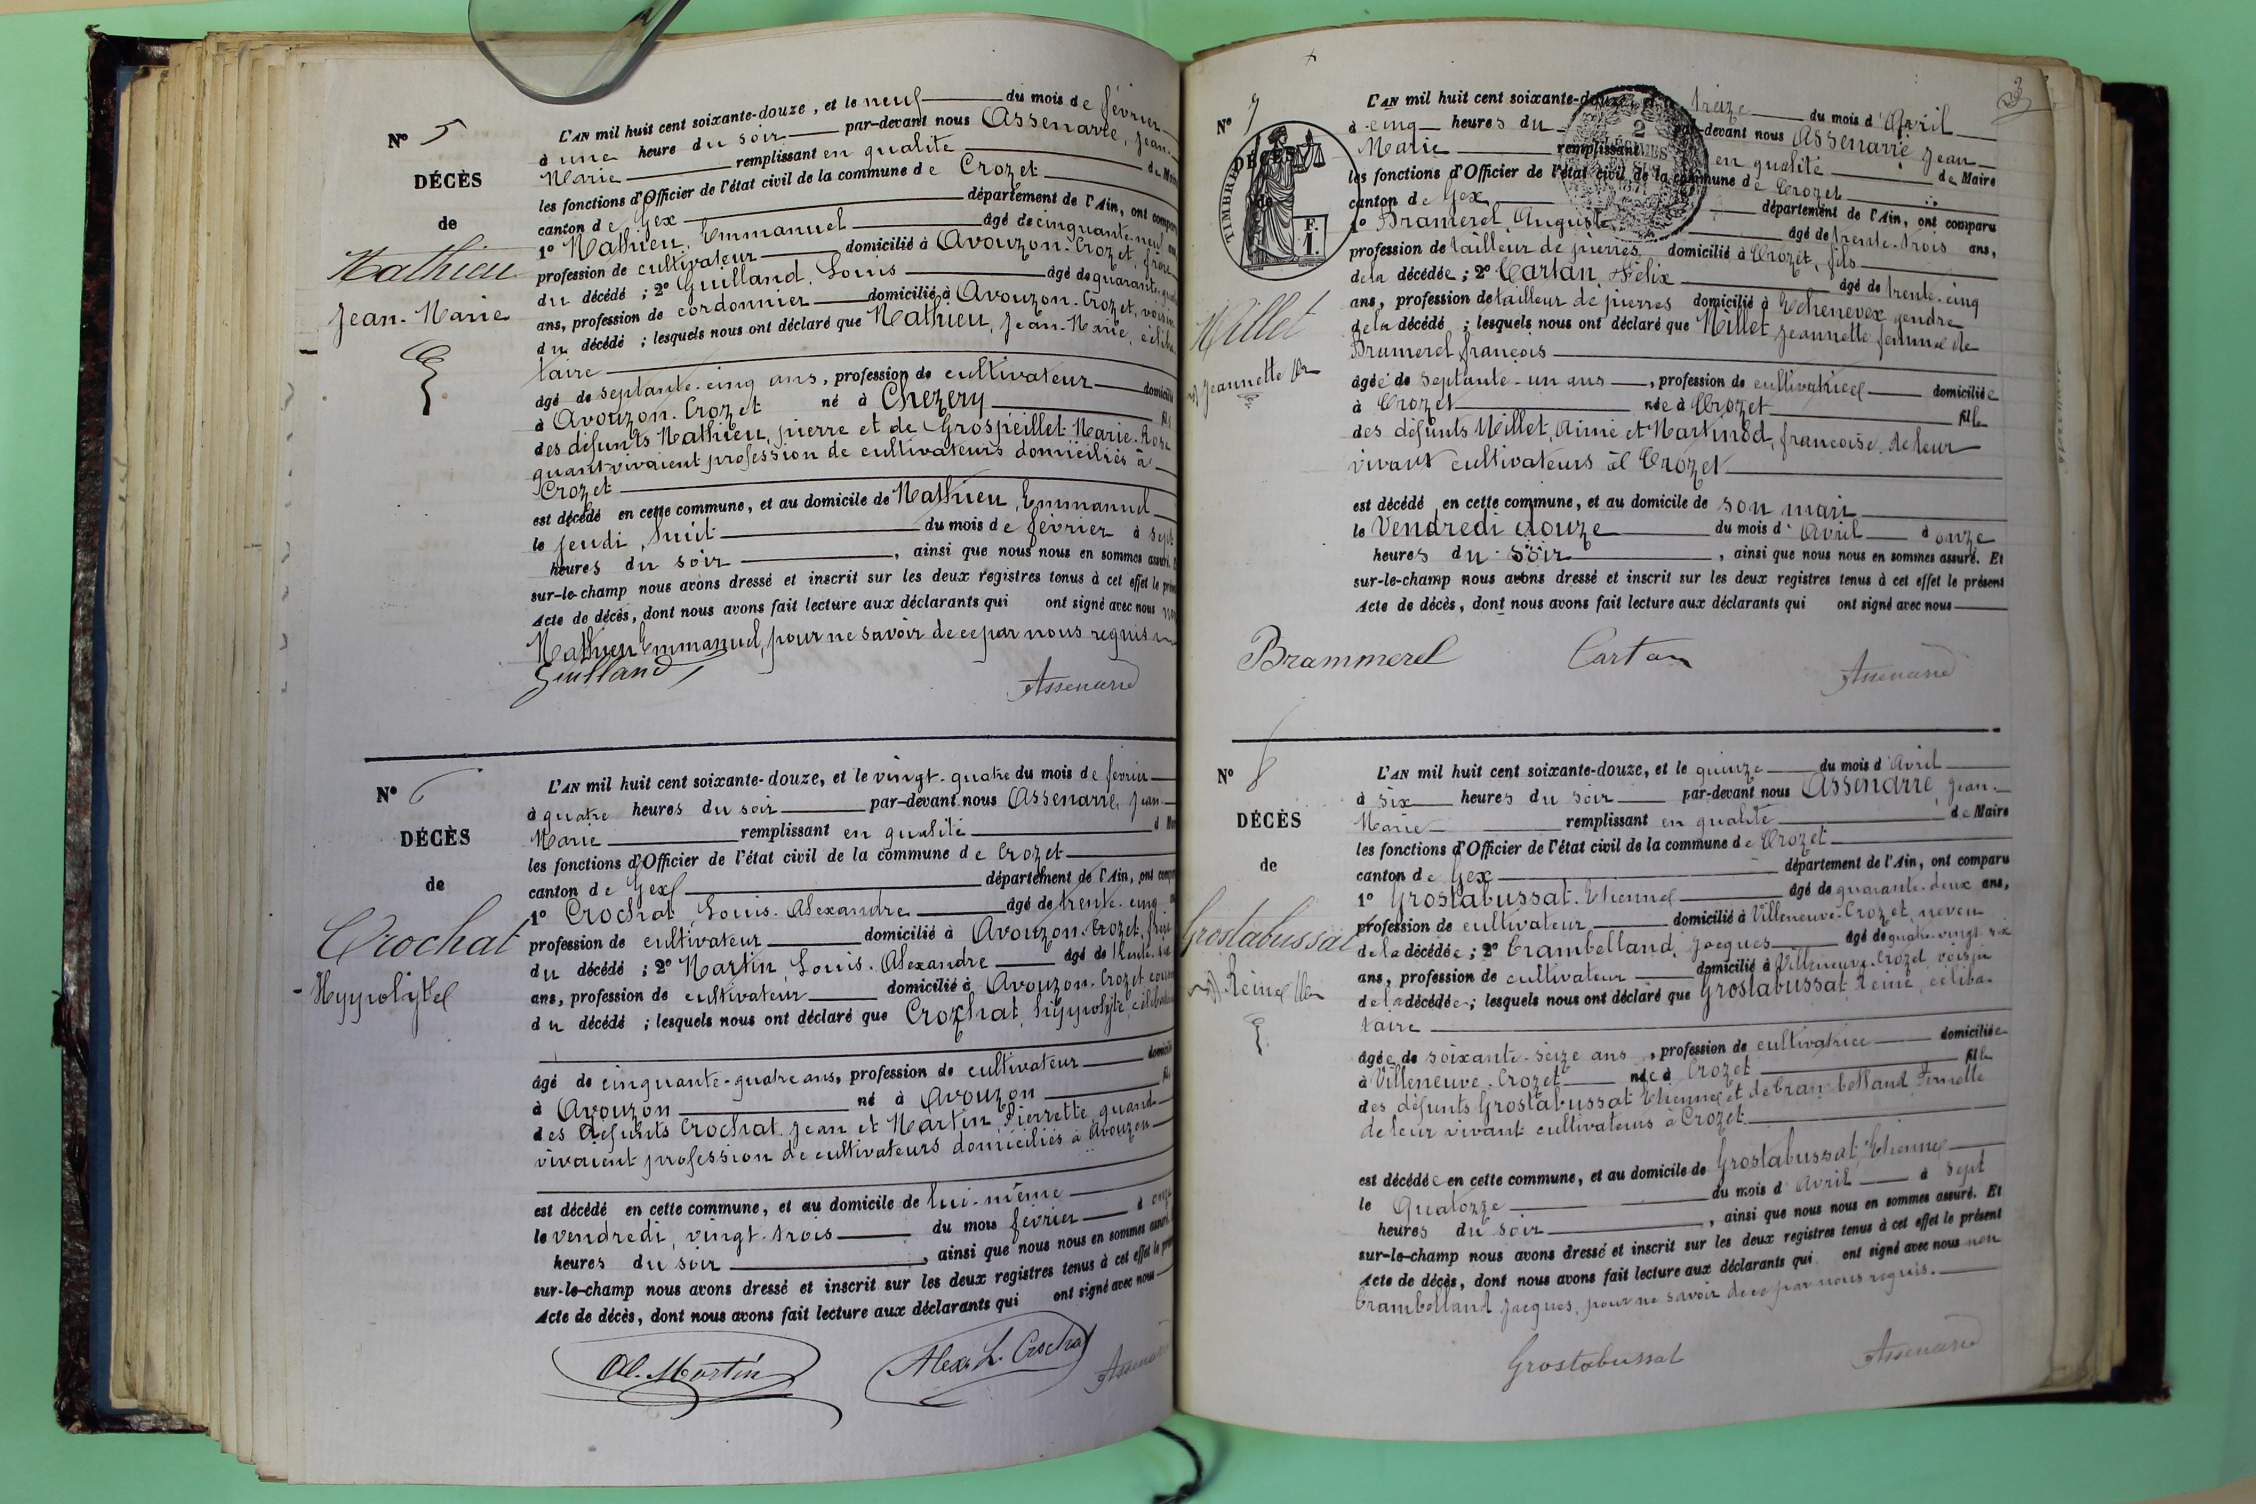 N° 5
DÉCÈS
de
Mathieu
Jean-Marie
L'AN mil huit cent soixante-douze, et le neuf du mois de février
à une heure du soir par-devant nous Assenarre, Jean-
Marie remplissant en qualité de
les fonctions d'Officier de l'état civil de la commune de Crozet
canton de Gex département de l'Ain, ont comparu
1° Mathieu, Emmanuel âgé de cinquante-neuf
profession de cultivateur domicilié à Avouzon-Crozet, frère
du décédé ; 2° Guilland, Louis âgé de quarante
ans, profession de cordonnier domicilié à Avouzon-Crozet, voisin
du décédé ; lesquels nous ont déclaré que Mathieu, Jean-Marie, céliba
taire
âgé de septante-cinq ans, profession de cultivateur domicilié
à Avouzon-Crozet né à Chezery fils
des défunts Mathieu, pierre et de Grospeillet Marie-Rose
quant vivaient profession de cultivateurs domiciliés à
Crozet
est décédé en cette commune, et au domicile de Mathieu, Emmanuel
le jeudi, huit du mois de février à sept
heures du soir , ainsi que nous nous en sommes assuré.
sur-le-champ nous avons dressé et inscrit sur les deux registres tenus à cet effet le
Acte de décès, dont nous avons fait lecture aux déclarants qui ont signé avec nous non
Mathieu Emmanuel, pour ne savoir de ce par nous requis
Guilland
Assenarre
N° 6
DÉCÈS
de
Crochat
Hyppolyte
L'AN mil huit cent soixante-douze, et le vingt-quatre du mois de février
à quatre heures du soir par-devant nous Assenarre, Jean-
Marie remplissant en qualité
les fonctions d'Officier de l'état civil de la commune de Crozet
canton de Gex département de l'Ain, ont
1° Crochat, Louis-Alexandre âgé de trente-cinq
profession de cultivateur domicilié à Avouzon-Crozet,
du décédé ; 2° Martin Louis-Alexandre âgé de trente-six
ans, profession de cultivateur domicilié à Avouzon-Crozet
du décédé ; lesquels nous ont déclaré que Crochat, hyppolyte,
âgé de cinquante-quatre ans, profession de cultivateur
à Avouzon né à Avouzon fils
des défunts Crochat Jean et Martin Pierrette quand
vivaient profession de cultivateurs domiciliés à Avouzon
est décédé en cette commune, et au domicile de lui-même
le vendredi, vingt-trois du mois février à onze
heures du soir , ainsi que nous nous en sommes assuré.
sur-le-champ nous avons dressé et inscrit sur les deux registres tenus à cet effet le
Acte de décès, dont nous avons fait lecture aux déclarants qui ont signé avec nous
Al. Martin
Alex. L. Crochat
3
N° 7
DÉCÈS
de
TIMBRE
F.
1.
2
Millet
Jeannette
L'AN mil huit cent soixante-douze, et le treize du mois d'Avril
à cinq heures du par-devant nous Assenarre Jean-
Marie remplissant en qualité de Maire
les fonctions d'Officier de l'état civil de la commune de Crozet
canton de Gex département de l'Ain, ont comparu
1° Bramerel, Auguste âgé de trente-trois ans,
profession de tailleur de pierres domicilié à Crozet, fils
de la décédée ; 2° Cartan, Félix âgé de trente-cinq
ans, profession de tailleur de pierres domicilié à Echenevex gendre
de la décédé ; lesquels nous ont déclaré que Millet Jeannette femme de
Bramerel françois
âgée de septante-un ans , profession de cultivatrice domiciliée
à Crozet née à Crozet fille
des défunts Millet, Aimé et Martinod, françoise, de leur
vivant cultivateurs à Crozet
est décédé en cette commune, et au domicile de son mari
le Vendredi douze du mois d'Avril à onze
heures du soir , ainsi que nous nous en sommes assuré. Et
sur-le-champ nous avons dressé et inscrit sur les deux registres tenus à cet effet le présent
Acte de décès, dont nous avons fait lecture aux déclarants qui ont signé avec nous
Brammerel
Cartan
Assenarre
N° 8
DÉCÈS
de
Grostabussat
Reine
L'AN mil huit cent soixante-douze, et le quinze du mois d'Avril
à six heures du soir par-devant nous Assenarre Jean-
Marie remplissant en qualité de Maire
les fonctions d'Officier de l'état civil de la commune de Crozet
canton de Gex département de l'Ain, ont comparu
1° Grostabussat-Etienne âgé de quarante-deux ans,
profession de cultivateur domicilié à Villeneuve-Crozet, neveu
de la décédée ; 2° Crambelland, Jacques âgé de quatre-vingt six
ans, profession de cultivateur domicilié à Villeneuve-Crozet voisin
de la décédée ; lesquels nous ont déclaré que Grostabussat Reine, céliba-
taire
âgée de soixante-seize ans , profession de cultivatrice domiciliée
à Villeneuve-Crozet née à Crozet fille
des défunts Grostabussat Etienne et de Crambelland Pernette
de leur vivant cultivateurs à Crozet
est décédée en cette commune, et au domicile de Grostabussat, Etienne
le Quatorze du mois d'Avril à sept
heures du soir , ainsi que nous nous en sommes assuré. Et
sur-le-champ nous avons dressé et inscrit sur les deux registres tenus à cet effet le présent
Acte de décès, dont nous avons fait lecture aux déclarants qui ont signé avec nous non
Crambelland Jacques, pour ne savoir de ce par nous requis.
Grostabussat
Assenarre